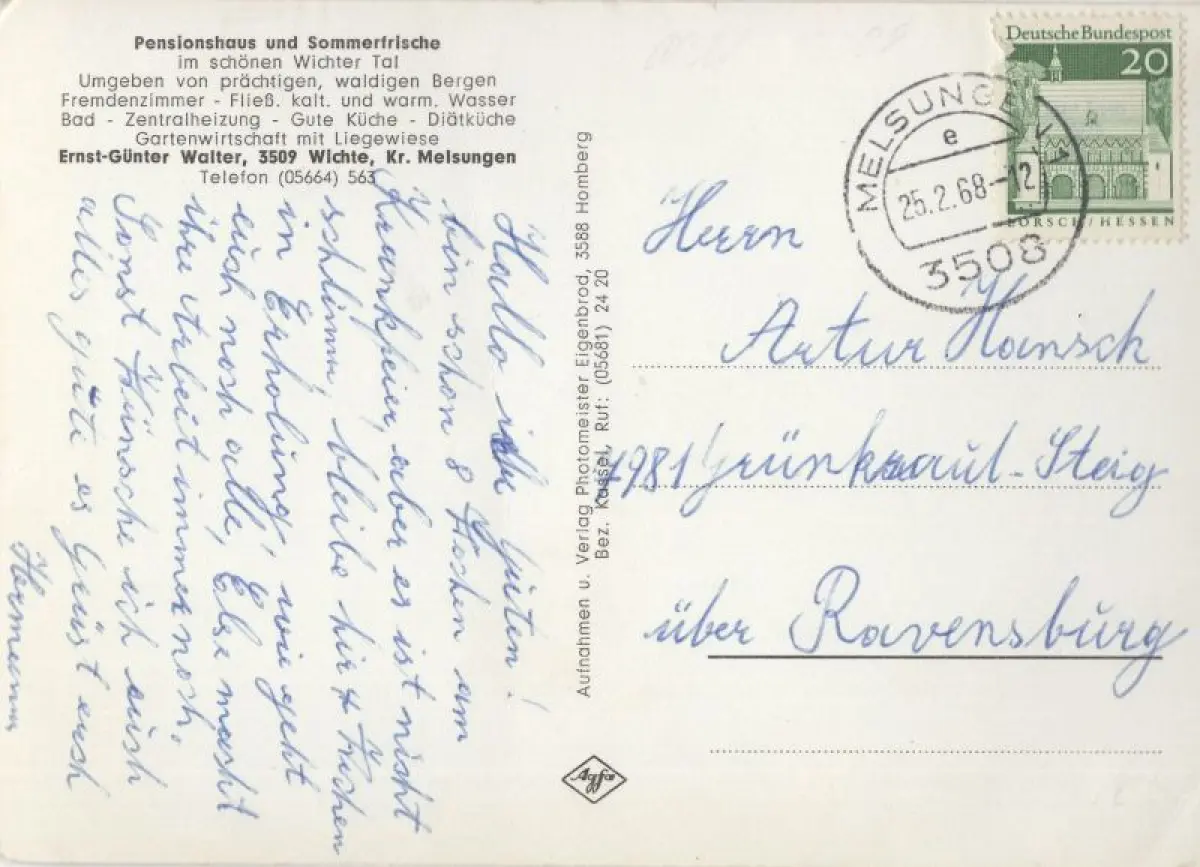 Pensionshaus und Sommerfrische
im schönen Wichter Tal
Umgeben von prächtigen, waldigen Bergen
Fremdenzimmer - Fließ. kalt. und warm. Wasser
Bad - Zentralheizung - Gute Küche - Diätküche
Gartenwirtschaft mit Liegewiese
Ernst-Günter Walter, 3509 Wichte, Kr. Melsungen
Telefon (05664) 563
Hallo ihr guten!
bin schon 8 Wochen am
Krankfeier, aber es ist nicht
schlimm, bleibe hir 4 Wochen
in Erholung, wie geht
euch noch alle, Else macht
ihre Arbeit immer noch,
Sonst Wünsche ich euch
alles gute es Grüst euch
Hermann
Aufnahmen u. Verlag Photomeister Eigenbrod, 3588 Homberg
Bez. Kassel, Ruf: (05681) 24 20
Agfa
Deutsche Bundespost
20
LORSCH / HESSEN
MELSUNGEN 1
e
25.2.68-12
3508
Herrn
Artur Hansch
7981 -Steig
über Ravensburg